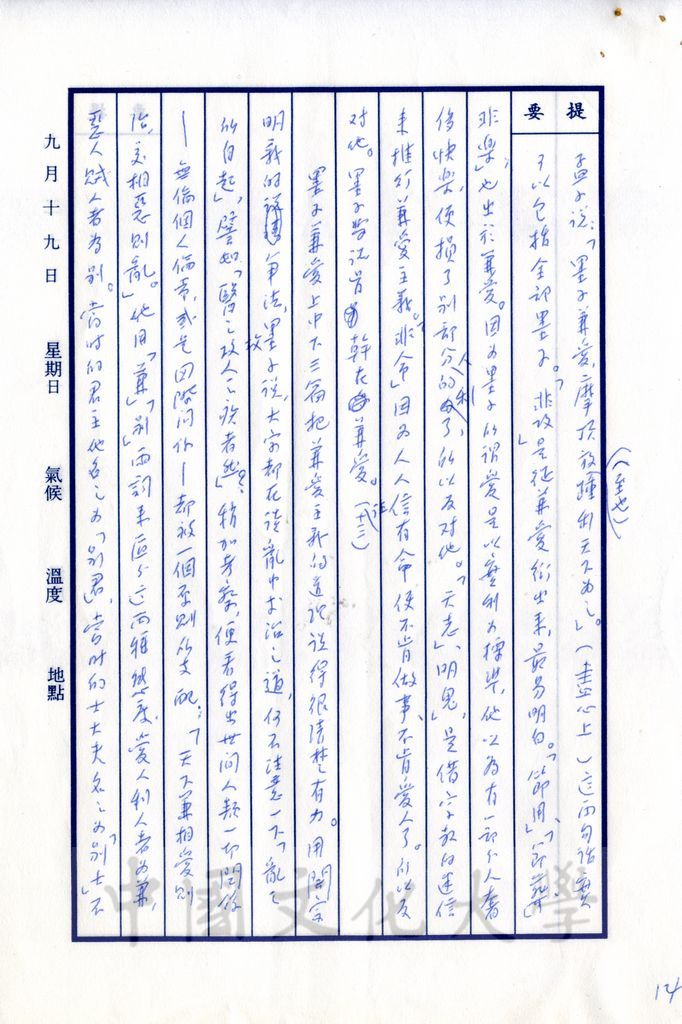 提要
孟子說:「墨子兼愛,摩頂放踵利天下為之」。(盡心上)這兩句話實
(至也)
可以包括全部墨子。「非攻」是從兼愛衍出來,最易明白。「節用」、「節葬」、
非樂」也出於兼愛。因為墨子所謂愛是以實利為標準,他以為有一部分人奢
侈快樂,便損了別部分人的利了,所以反對他。「天志」、「明鬼」,是借宗教的迷信
來推行兼愛主義。「非命」因為人人信有命,便不肯做事、不肯愛人了。所以反
對他。墨子學說皆幹在兼愛。(註十三)
墨子兼愛上中下三篇把兼愛主義的道說說得很清楚有力。用開宗
明義的筆法,墨子說,大家都在談亂中求治之道,何不注意一下「亂之
所自起」,譬如「醫之攻人之疾者然」?稍加考察,便看得出世間人類一切關係
—無論個人倫常,或是國際間的—都被一個原則所支配:「天下兼相愛則
治,交相惡則亂。」他用「兼」「別」兩詞來區分這兩種態度。愛人利人者為兼,
惡人賊人者為別。當時的君主他名之為「別君」,當時的士大夫名之為「別士」不
九月十九日 星期日 氣候 溫度 地點
中國文化大學
14